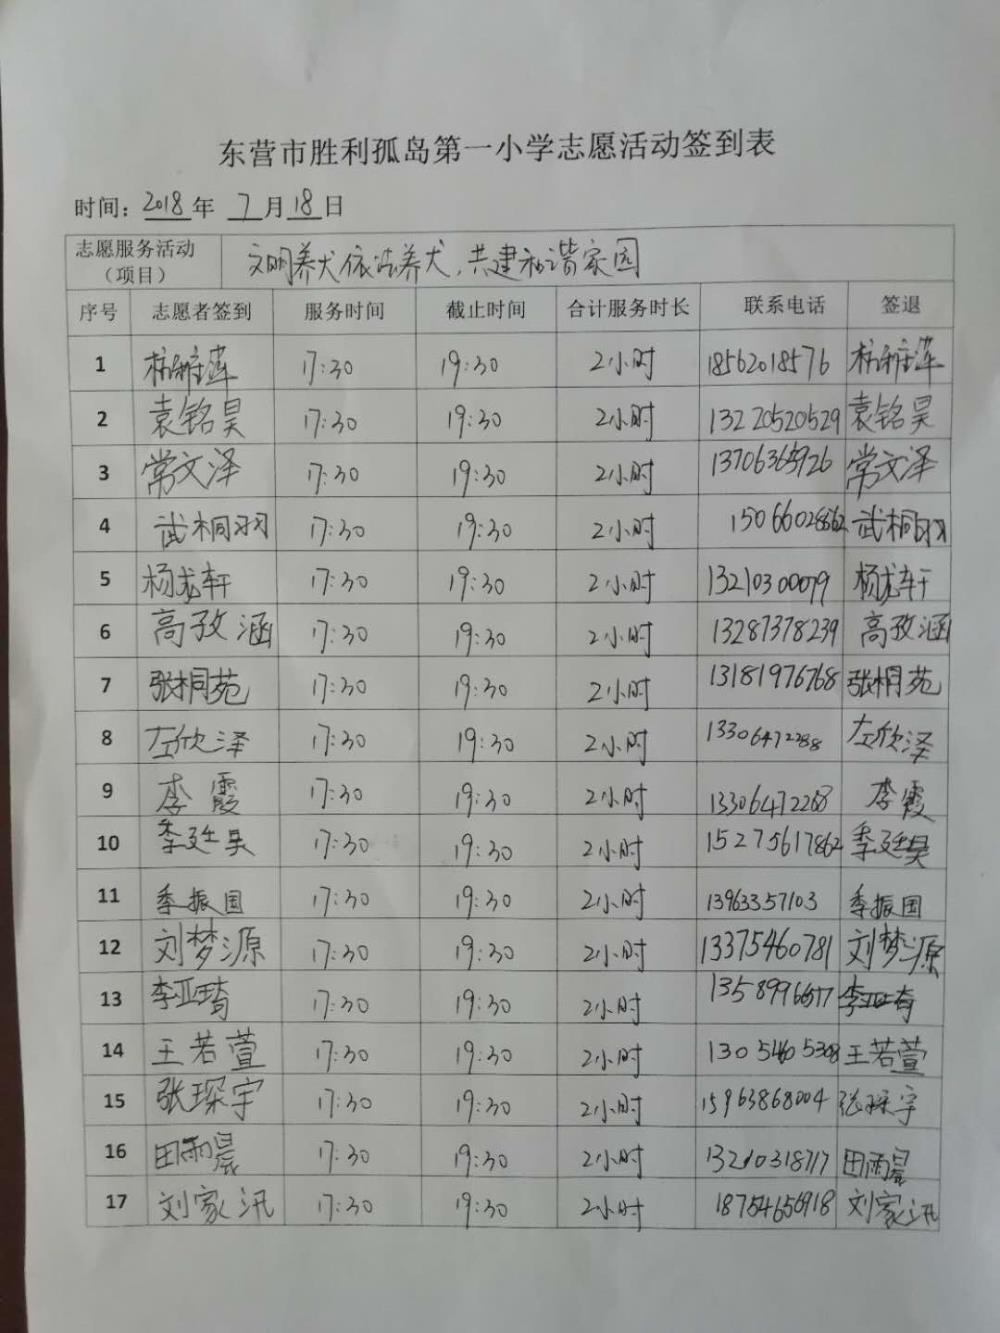 东营市胜利孤岛第一小学志愿活动签到表
时间：2018年 7月18日
志愿服务活动（项目） 文明养犬依法养犬，共建和谐家园
序号 志愿者签到 服务时间 截止时间 合计服务时长 联系电话 签退
1 17:30 19:30 2小时 18562018576
2 袁铭昊 17:30 19:30 2小时 13220520529 袁铭昊
3 常文泽 17:30 19:30 2小时 常文泽
4 武桐羽 17:30 19:30 2小时 武桐羽
5 杨龙轩 17:30 19:30 2小时 13210300079 杨龙轩
6 高孜涵 17:30 19:30 2小时 13287378239 高孜涵
7 张桐苑 17:30 19:30 2小时 13181976768 张桐苑
8 左欣泽 17:30 19:30 2小时 左欣泽
9 李霞 17:30 19:30 2小时 李霞
10 季廷昊 17:30 19:30 2小时 15275617862 季廷昊
11 季振国 17:30 19:30 2小时 13963357103 季振国
12 刘梦源 17:30 19:30 2小时 13375460781 刘梦源
13 17:30 19:30 2小时
14 王若萱 17:30 19:30 2小时 13054605308 王若萱
15 张琛宇 17:30 19:30 2小时 15963868004 张琛宇
16 田雨晨 17:30 19:30 2小时 田雨晨
17 刘家汛 17:30 19:30 2小时 18754656918 刘家汛